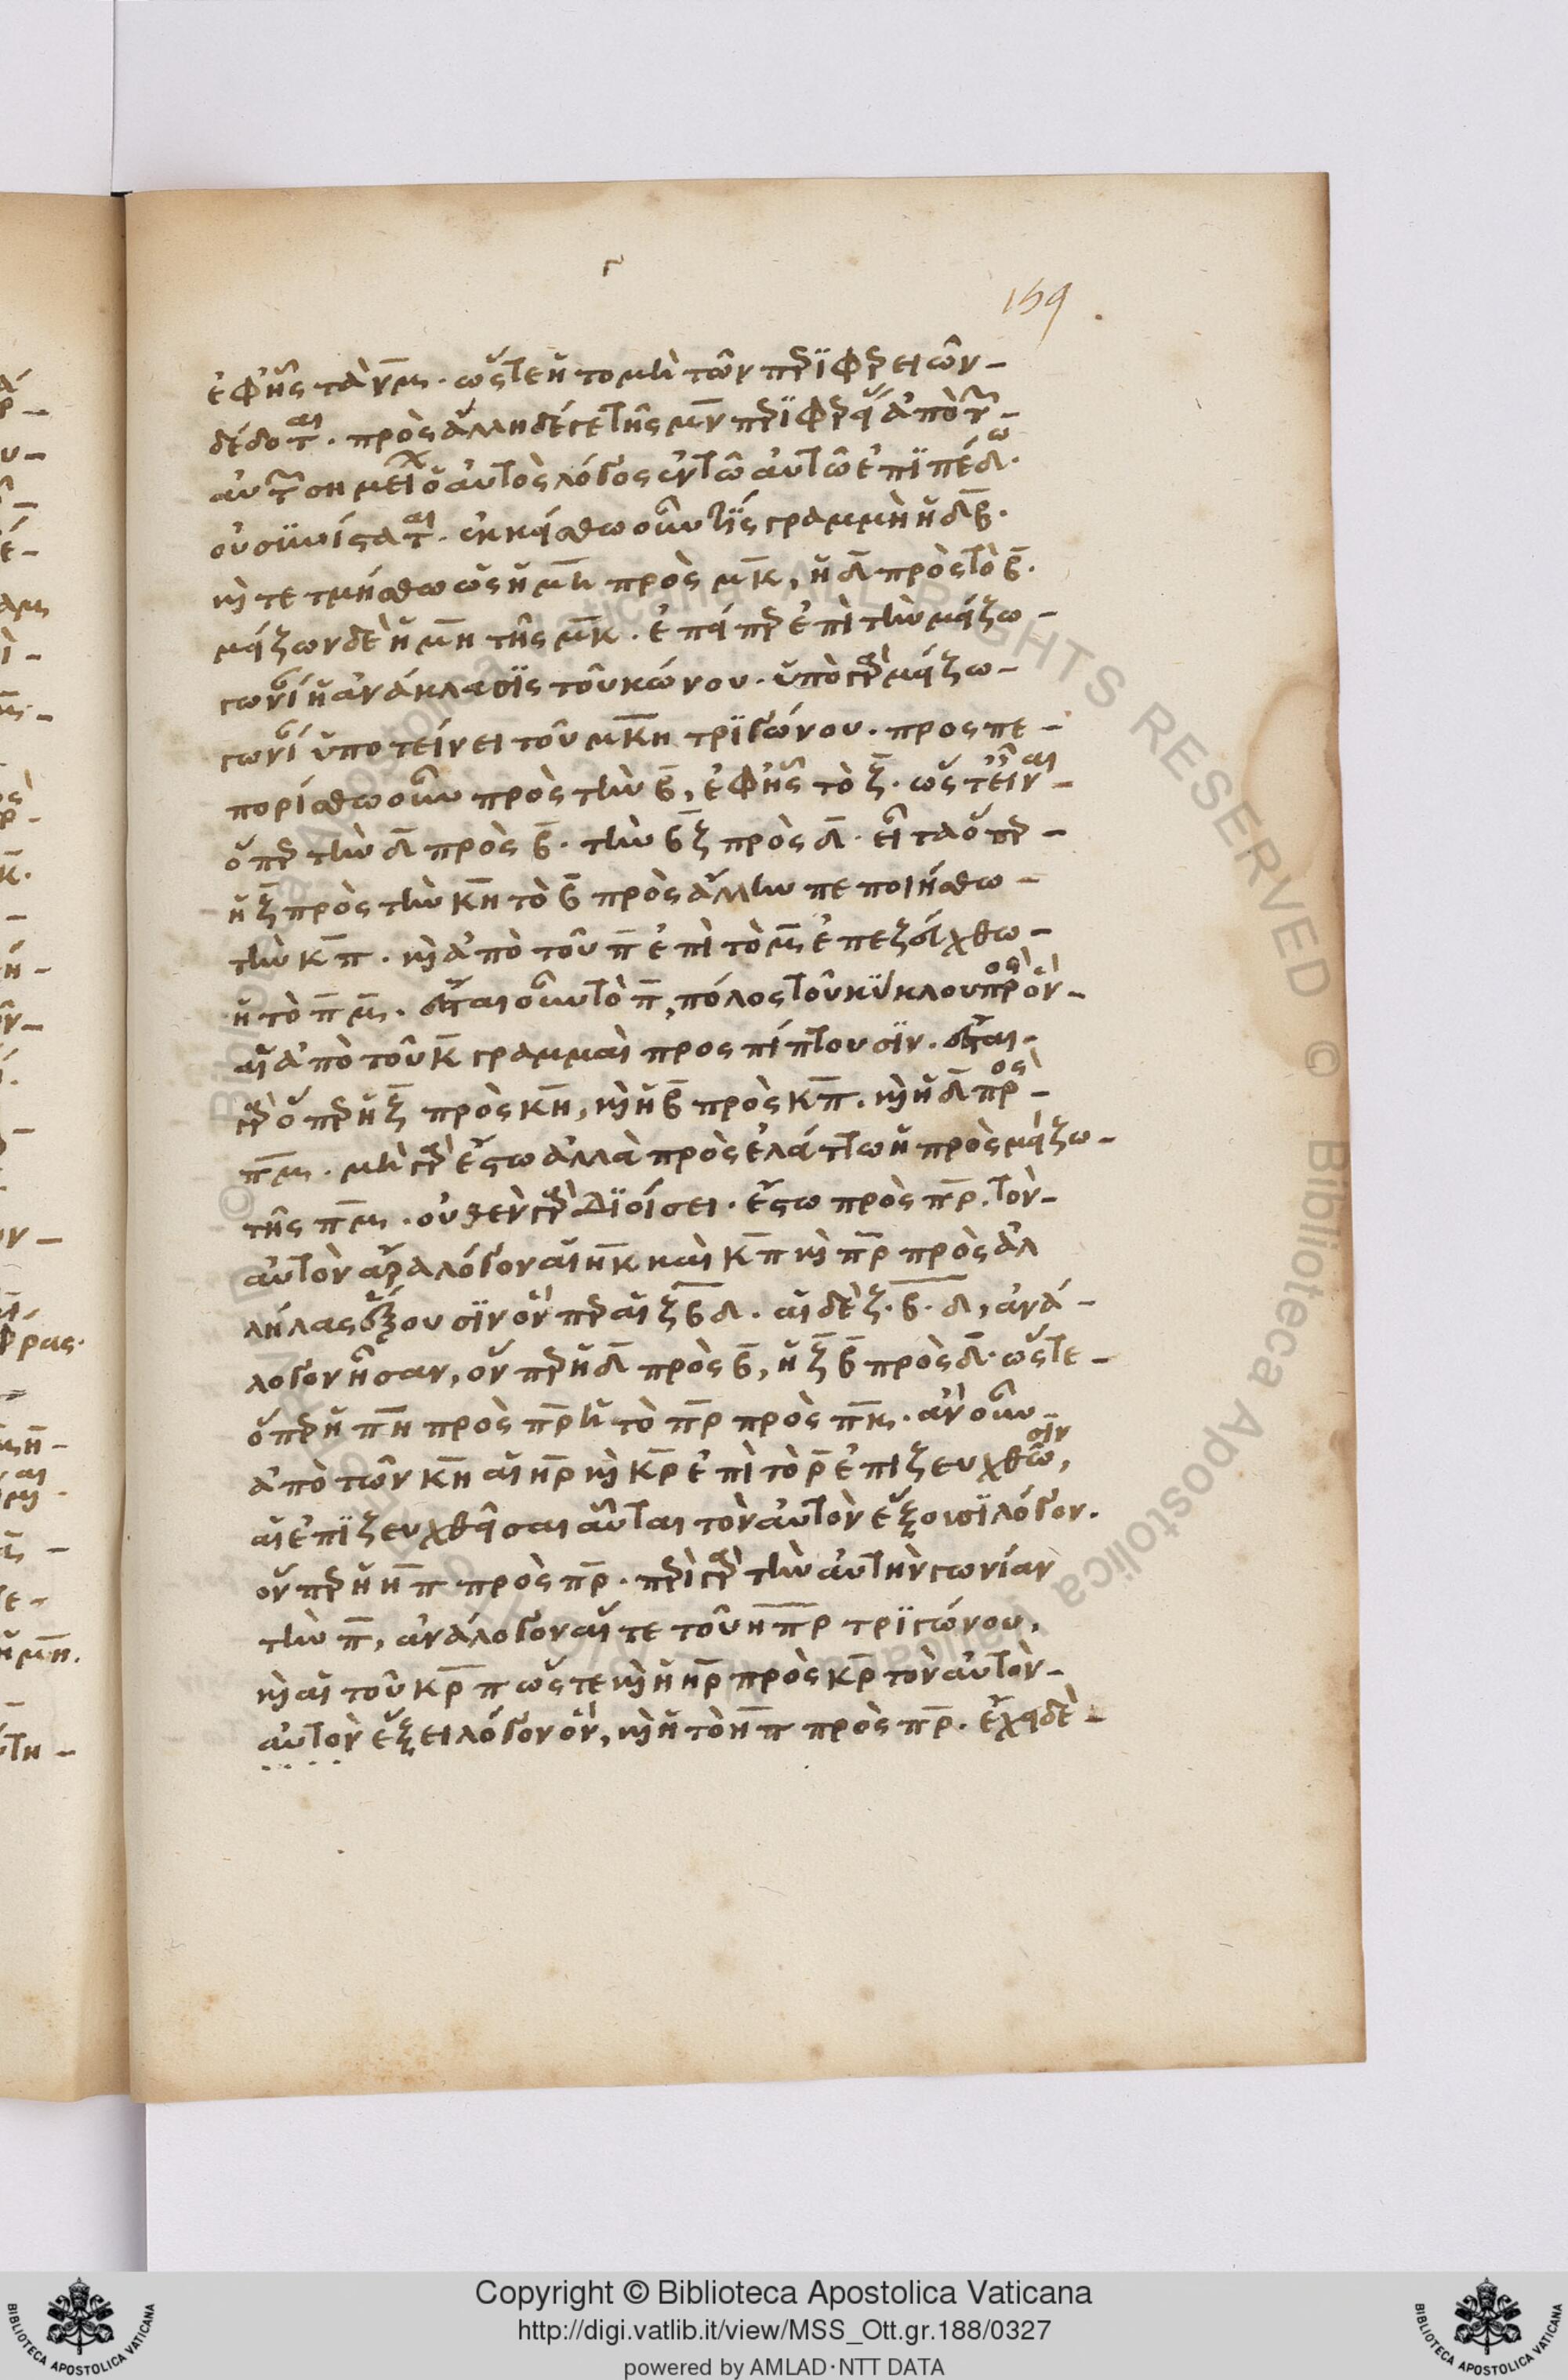 159
ἐφ' ἧς τὰ ν̅μ̅. ὥστε ἡ τομὴ τῶν περιφερειῶν
δέδοται. πρὸς ἄλλη δέ γε τῆς μ̅ν̅ περιφερείᾳ ἀπὸ τῶν
αὐτῶν σημείων ὁ αὐτὸς λόγος ἐν τῷ αὐτῷ ἐπιπέδω
οὐ συνίσταται. ἐκκείσθω οὖν τὶς γραμμὴ ἡ δ̅β̅.
καὶ τετμήσθω ὡς ἡ μ̅η̅ πρὸς μ̅κ̅, ἡ δ̅ πρὸς τὸ β̅.
μείζων δὲ ἡ μ̅η̅ τῆς μ̅κ̅. ἐπείπερ ἐπὶ τὴν μείζω
γωνίαν ἡ ἀνάκλασις τοῦ κώνου. ὑπὸ γὰρ μείζω
γωνίαν ὑποτείνει τοῦ μ̅κ̅η̅ τριγώνου. προσπε
πορίσθω οὖν πρὸς τὴν β̅, ἐφ' ἧς τὸ ζ̅. ὥστ' εἶναι
ὅπερ τὴν δ̅ πρὸς β̅. τὴν β̅ζ̅ πρὸς δ̅. εἶτα ὅπερ
ἡ ζ̅ πρὸς τὴν κ̅η̅ τὸ β̅ πρὸς ἄλλην πεποιήσθω
τὴν κ̅π̅. καὶ ἀπὸ τοῦ π̅ ἐπὶ τὸ μ̅ ἐπεζεύχθω
ἡ τὸ π̅μ̅. ἔσται οὖν τὸ π̅, πόλος τοῦ κύκλου πρὸς ὃν
αἱ ἀπὸ τοῦ κ̅ γραμμαὶ προσπίπτουσιν. ἔσται
γὰρ ὅπερ ἡ ζ̅ πρὸς κ̅η̅, καὶ ἡ β̅ πρὸς κ̅π̅. καὶ ἡ δ̅ πρὸς
π̅μ̅. μὴ γὰρ ἔστω ἀλλὰ πρὸς ἐλάττω ἢ πρὸς μείζω
τῆς π̅μ̅. οὐθὲν γὰρ διοίσει. ἔστω πρὸς π̅ρ̅. τὸν
αὐτὸν ἄρα λόγον αἱ η̅κ̅ καὶ κ̅π̅ καὶ π̅ρ̅ πρὸς ἀλ
λήλας ἕξουσιν ὅνπερ αἱ ζ̅β̅δ̅. αἱ δὲ ζ̅.β̅.δ̅, ἀνά
λογον ἦσαν, ὅνπερ ἡ δ̅ πρὸς β̅, ἡ ζ̅β̅ πρὸς δ̅. ὥστε
ὅπερ ἡ π̅η̅ πρὸς π̅ρ̅ ἡ τὸ π̅ρ̅ πρὸς π̅κ̅. ἂν οὖν
ἀπὸ τῶν κ̅η̅ αἱ η̅ρ̅ καὶ κ̅ρ̅ ἐπὶ τὸ ρ̅ ἐπιζευχθῶσιν,
αἱ ἐπιζευχθεῖσαι αὗται τὸν αὐτὸν ἕξουσι λόγον.
ὅνπερ ἡ η̅π̅ πρὸς π̅ρ̅. περὶ γὰρ τὴν αὐτὴν γωνίαν
τὴν π̅, ἀνάλογον αἵ τε τοῦ η̅π̅ρ̅ τριγώνου,
καὶ αἱ τοῦ κ̅ρ̅π̅ ὥστε καὶ ἡ η̅ρ̅ πρὸς κ̅ρ̅ τὸν αὐτὸν
αὐτὸν ἕξει λόγον ὃν, καὶ ἡ τὸ η̅π̅ πρὸς π̅ρ̅. ἔχει δὲ
Copyright © Biblioteca Apostolica Vaticana
http://digi.vatlib.it/view/MSS_Ott.gr.188/0327
powered by AMLAD·NTT DATA